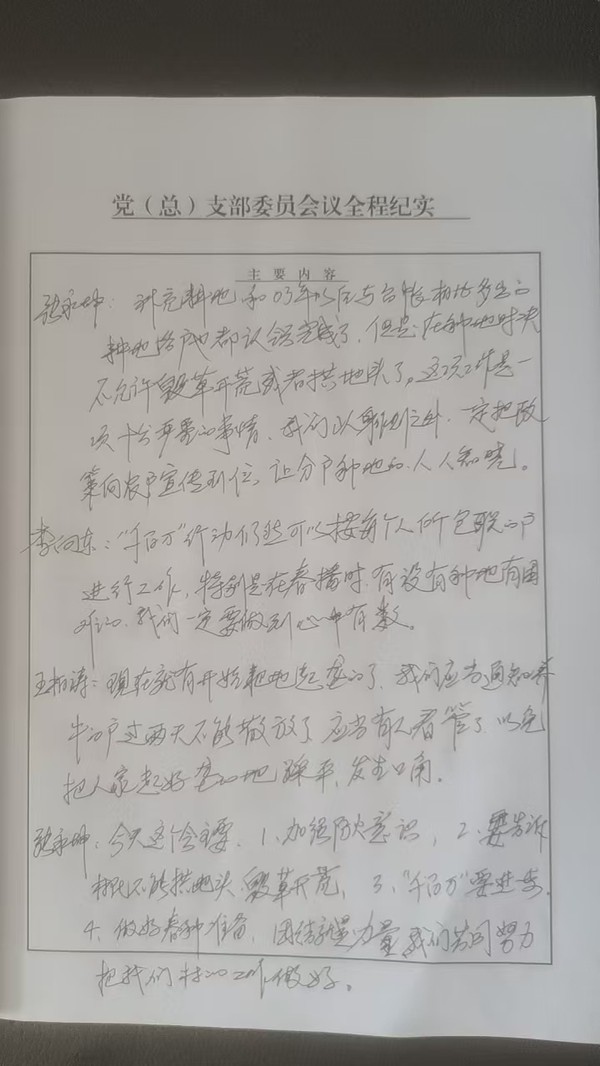 党（总）支部委员会议全程纪实
主要内容
张永坤：补充耕地和03年以后与台帐相比多出的
耕地给户地都认领完成了，但是在种地时决
不允许毁草开荒或者拱地头了。这项工作是一
项十分严肃的事情，我们以身作则之外，一定把政
策向农户宣传到位，让分户种地的人人知晓。
李向东："千百万"行动仍然可以按每个人所包联的户
进行工作，特别是在春播时，有没有种地有困
难的，我们一定要做到心中有数。
王柏涛：现在就有开始耙地起垄的了，我们应当通知养
牛的户过两天不能散放了，应当有人看管了，以免
把人家起好垄的地踩平，发生口角。
张永坤：今天这个会主要，1、加强防火意识，2、要告诉
村民不能拱地头、毁草开荒，3、"千百万"要进步，
4、做好春种准备，团结力量，我们共同努力
把我们村的工作做好。